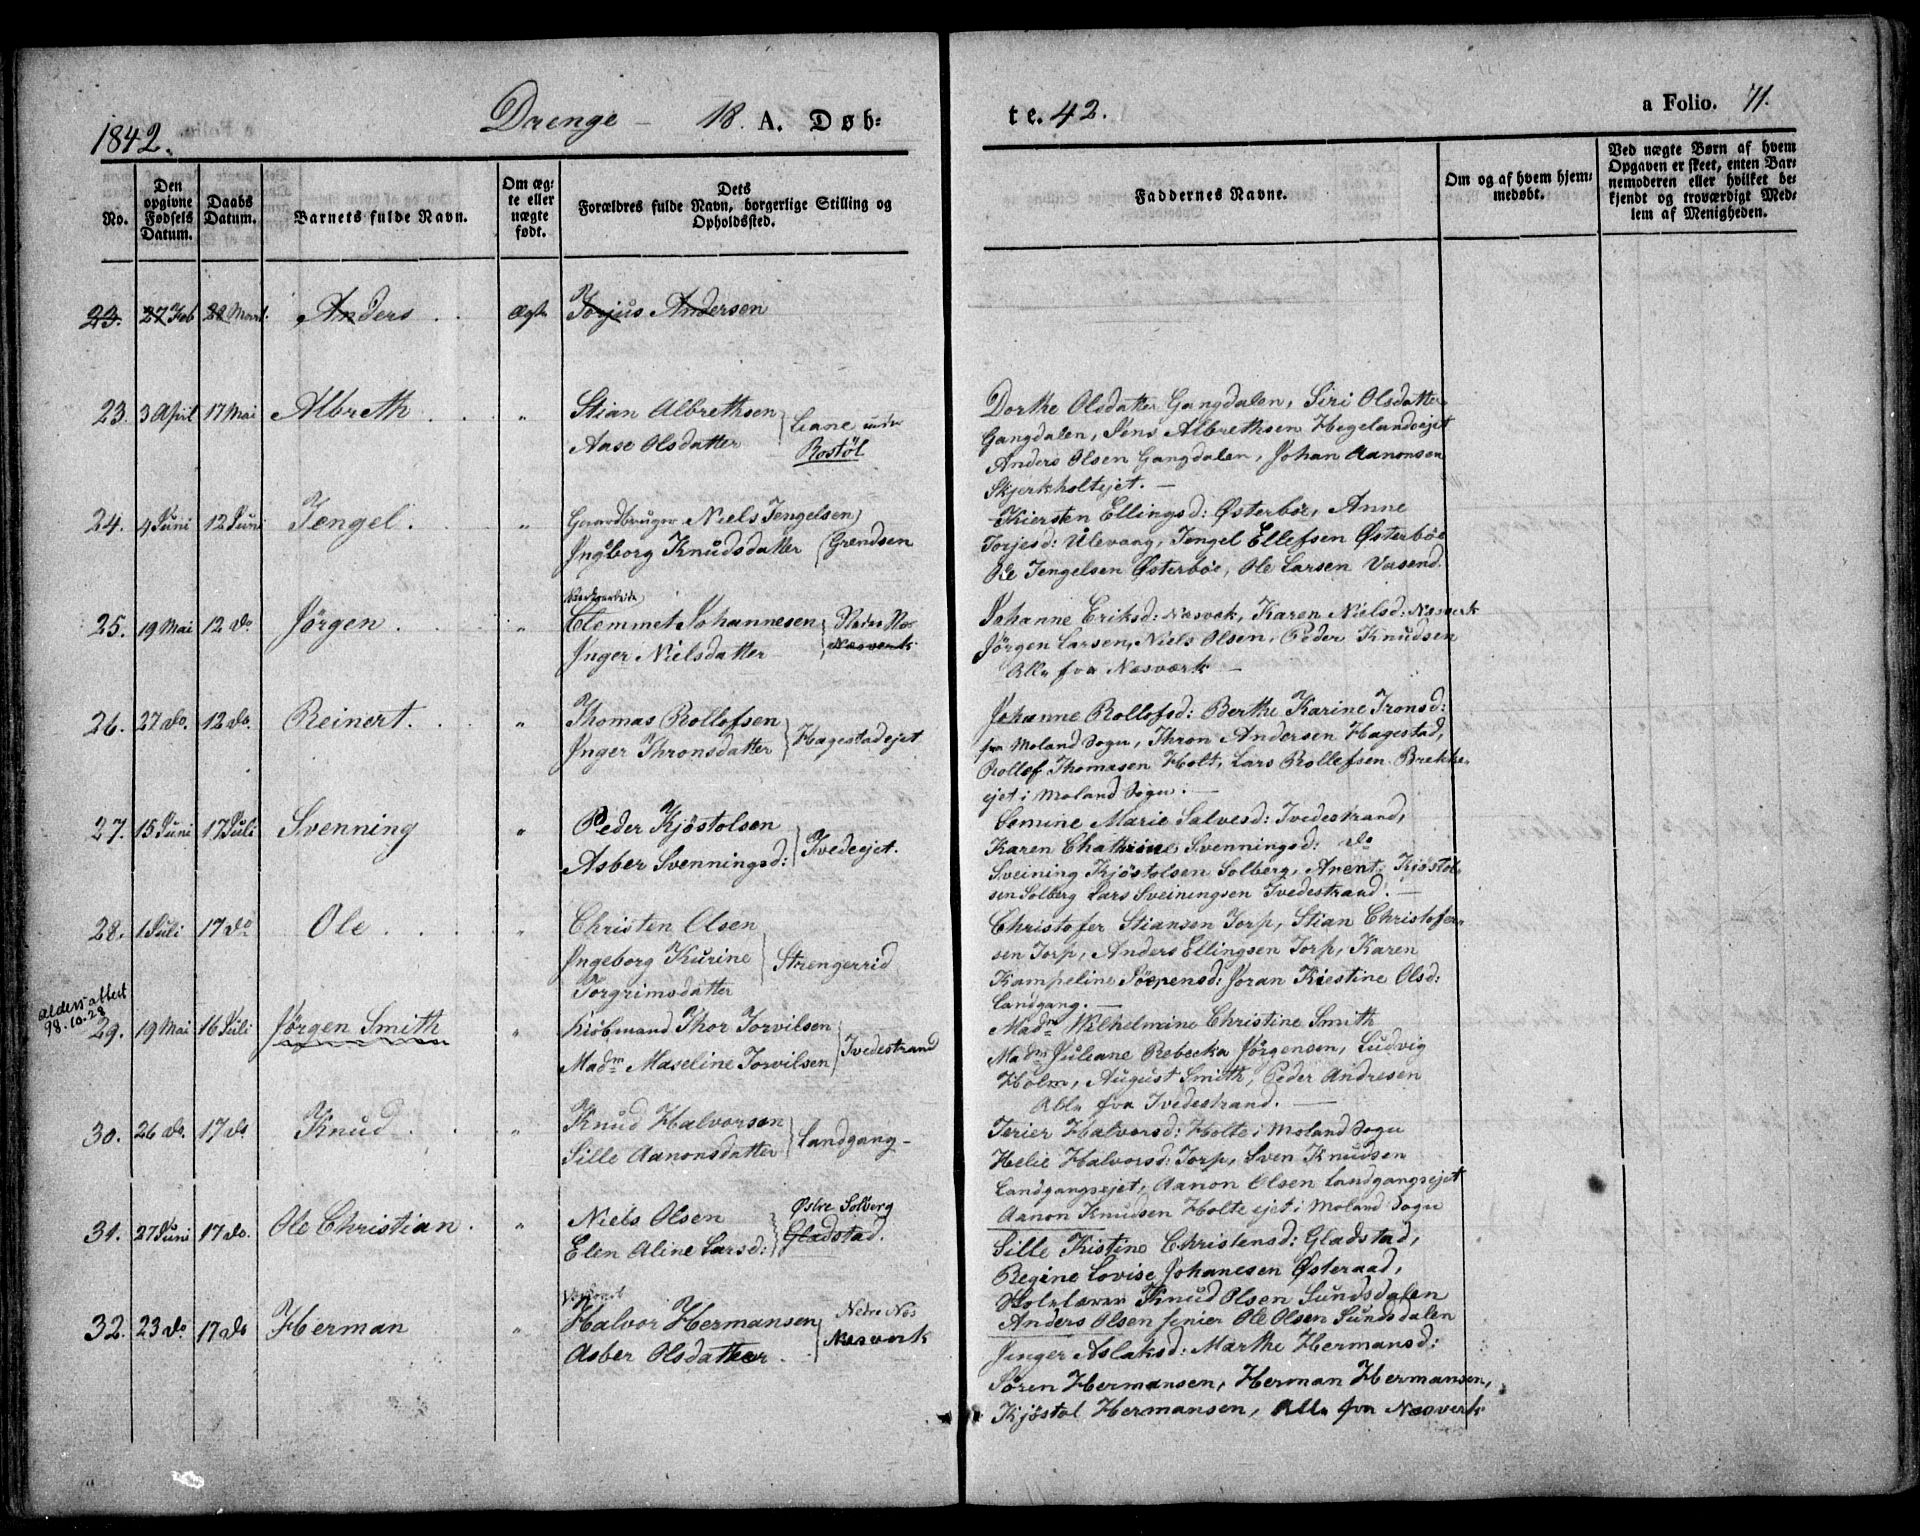 1842.
Drenge – 18 A. Døb-
te. 42.
a Folio. 71.
No.
Den opgivne Fødsels Datum.
Daabs Datum.
Barnets fulde Navn.
Om ægte eller nægte født.
Dets Forældres fulde Navn, borgerlige Stilling og Opholdssted.
Faddernes Navne.
Om og af hvem hjemmedøbt.
Ved nægte Børn af hvem Opgaven er skeet, enten Barnemoderen eller hvilket bekjendt og troværdigt Medlem af Menigheden.
23. 27 Feb 28 Mart. Anders . . Ægte Torjus Andersen
23. 3 April 17 Mai Albreth . . . „ Stian Albrethsen
Aase Olsdatter } Liane under
Rostøl
Dorthe Olsdatter Gangdalen, Siri Olsdatter
Gangdalen, Jens Albrethsen Hegelandsejet
Anders Olsen Gangdalen, Johan Aanonsen
Skjerkholtejet. —
24. 4 Juni 12 Juni Tengel. . . „ Gaardbruger Niels Tengelsen
Ingborg Knudsdatter } Grendsen
Kiersten Ellingsd: Østerbøe, Anne
Torjesd: Ulevaag, Tengel Ellefsen Østerbøe
Ole Tengelsen Østerbøe, Ole Larsen Vasend.
25. 19 Mai 12 do Jörgen . . . „ Clemmet Johannesen
Inger Nielsdatter – } Nesverk
Johanne Eriksd: Nesverk, Karen Nielsd: Nesverk
Jörgen Larsen, Niels Olsen, Peder Knudsen
Alle fra Nesværk —
26. 27 do. 12 do. Reinert. . . „ Thomas Rollofsen
Inger Thronsdatter } Hagestadejet
Johanne Rollofsd: Berthe Karine Tronsd:
fra Moland Sogn, Thron Andersen Hagestad,
Rollof Thomasen Holt, Lars Rollefsen Brekke-
ejet i Moland Sogn. —
27. 15 Juni 17 Juli Svenning „ Peder Kjöstolsen
Asber Svenningsd: } Tvedeejet.
Semine Marie Salvesd: Tvedestrand,
Karen Chathrine Svenningsd: do
Sveining Kjöstolsen Solberg, Anent: Kjöstol-
sen Solberg Lars Sveiningsen Tvedestrand. —
28. 1 Juli 17 do Ole. . . . „ Christen Olsen
Ingeborg Kurine
Torgrimsdatter } Strengerrid
Christofer Stiansen Torp, Stian Christofer-
sen Torp, Anders Ellingsen Torp, Karen
Kampeline Söepensd: Joran Kiestine Olsd:
Landgang. —
aldersattest
98.10.28
29. 19 Mai 16 Juli Jörgen Smith „ Kiöbmand Thor Torvilsen
Madm Maseline Torvilsen } Tvedestrand
Madm Wilhelmine Christine Smith
Madm Juliane Rebecka Jörgensen, Ludvig
Holm, August Smith, Peder Andresen
Alle fra Tvedestrand. —
30. 26 do. 17 do Knud . . . „ Knud Halvorsen
Sille Aanonsdatter } Landgang –
Terier Halvorsd: Holte i Moland Sogn
Helie Halvorsd: Torp, Sven Knudsen
Landgangsejet, Aanon Olsen Landgangsejet
Aanon Knudsen Holte ejet i Moland Sogn
31. 27 Juni 17 do. Ole Christian . „ Niels Olsen
Elen Aline Larsd: } Østre Solberg
Gladstad.
Sille Kistine Christensd: Gladstad,
Regine Lovise Johanesen Østeraad,
Knud Olsen Sundsdalen
Anders Olsen senier Ole Olsen Sundsdalen
32. 23 do 17 do Herman „ Halvor Hermansen
Asber Olsdatter . } Nedre Nes
Nesverk
Jinger Aslaksd: Marthe Hermansd:
Sören Hermansen, Herman Hermansen,
Kjöstol Hermansen, Alle fra Nesverk